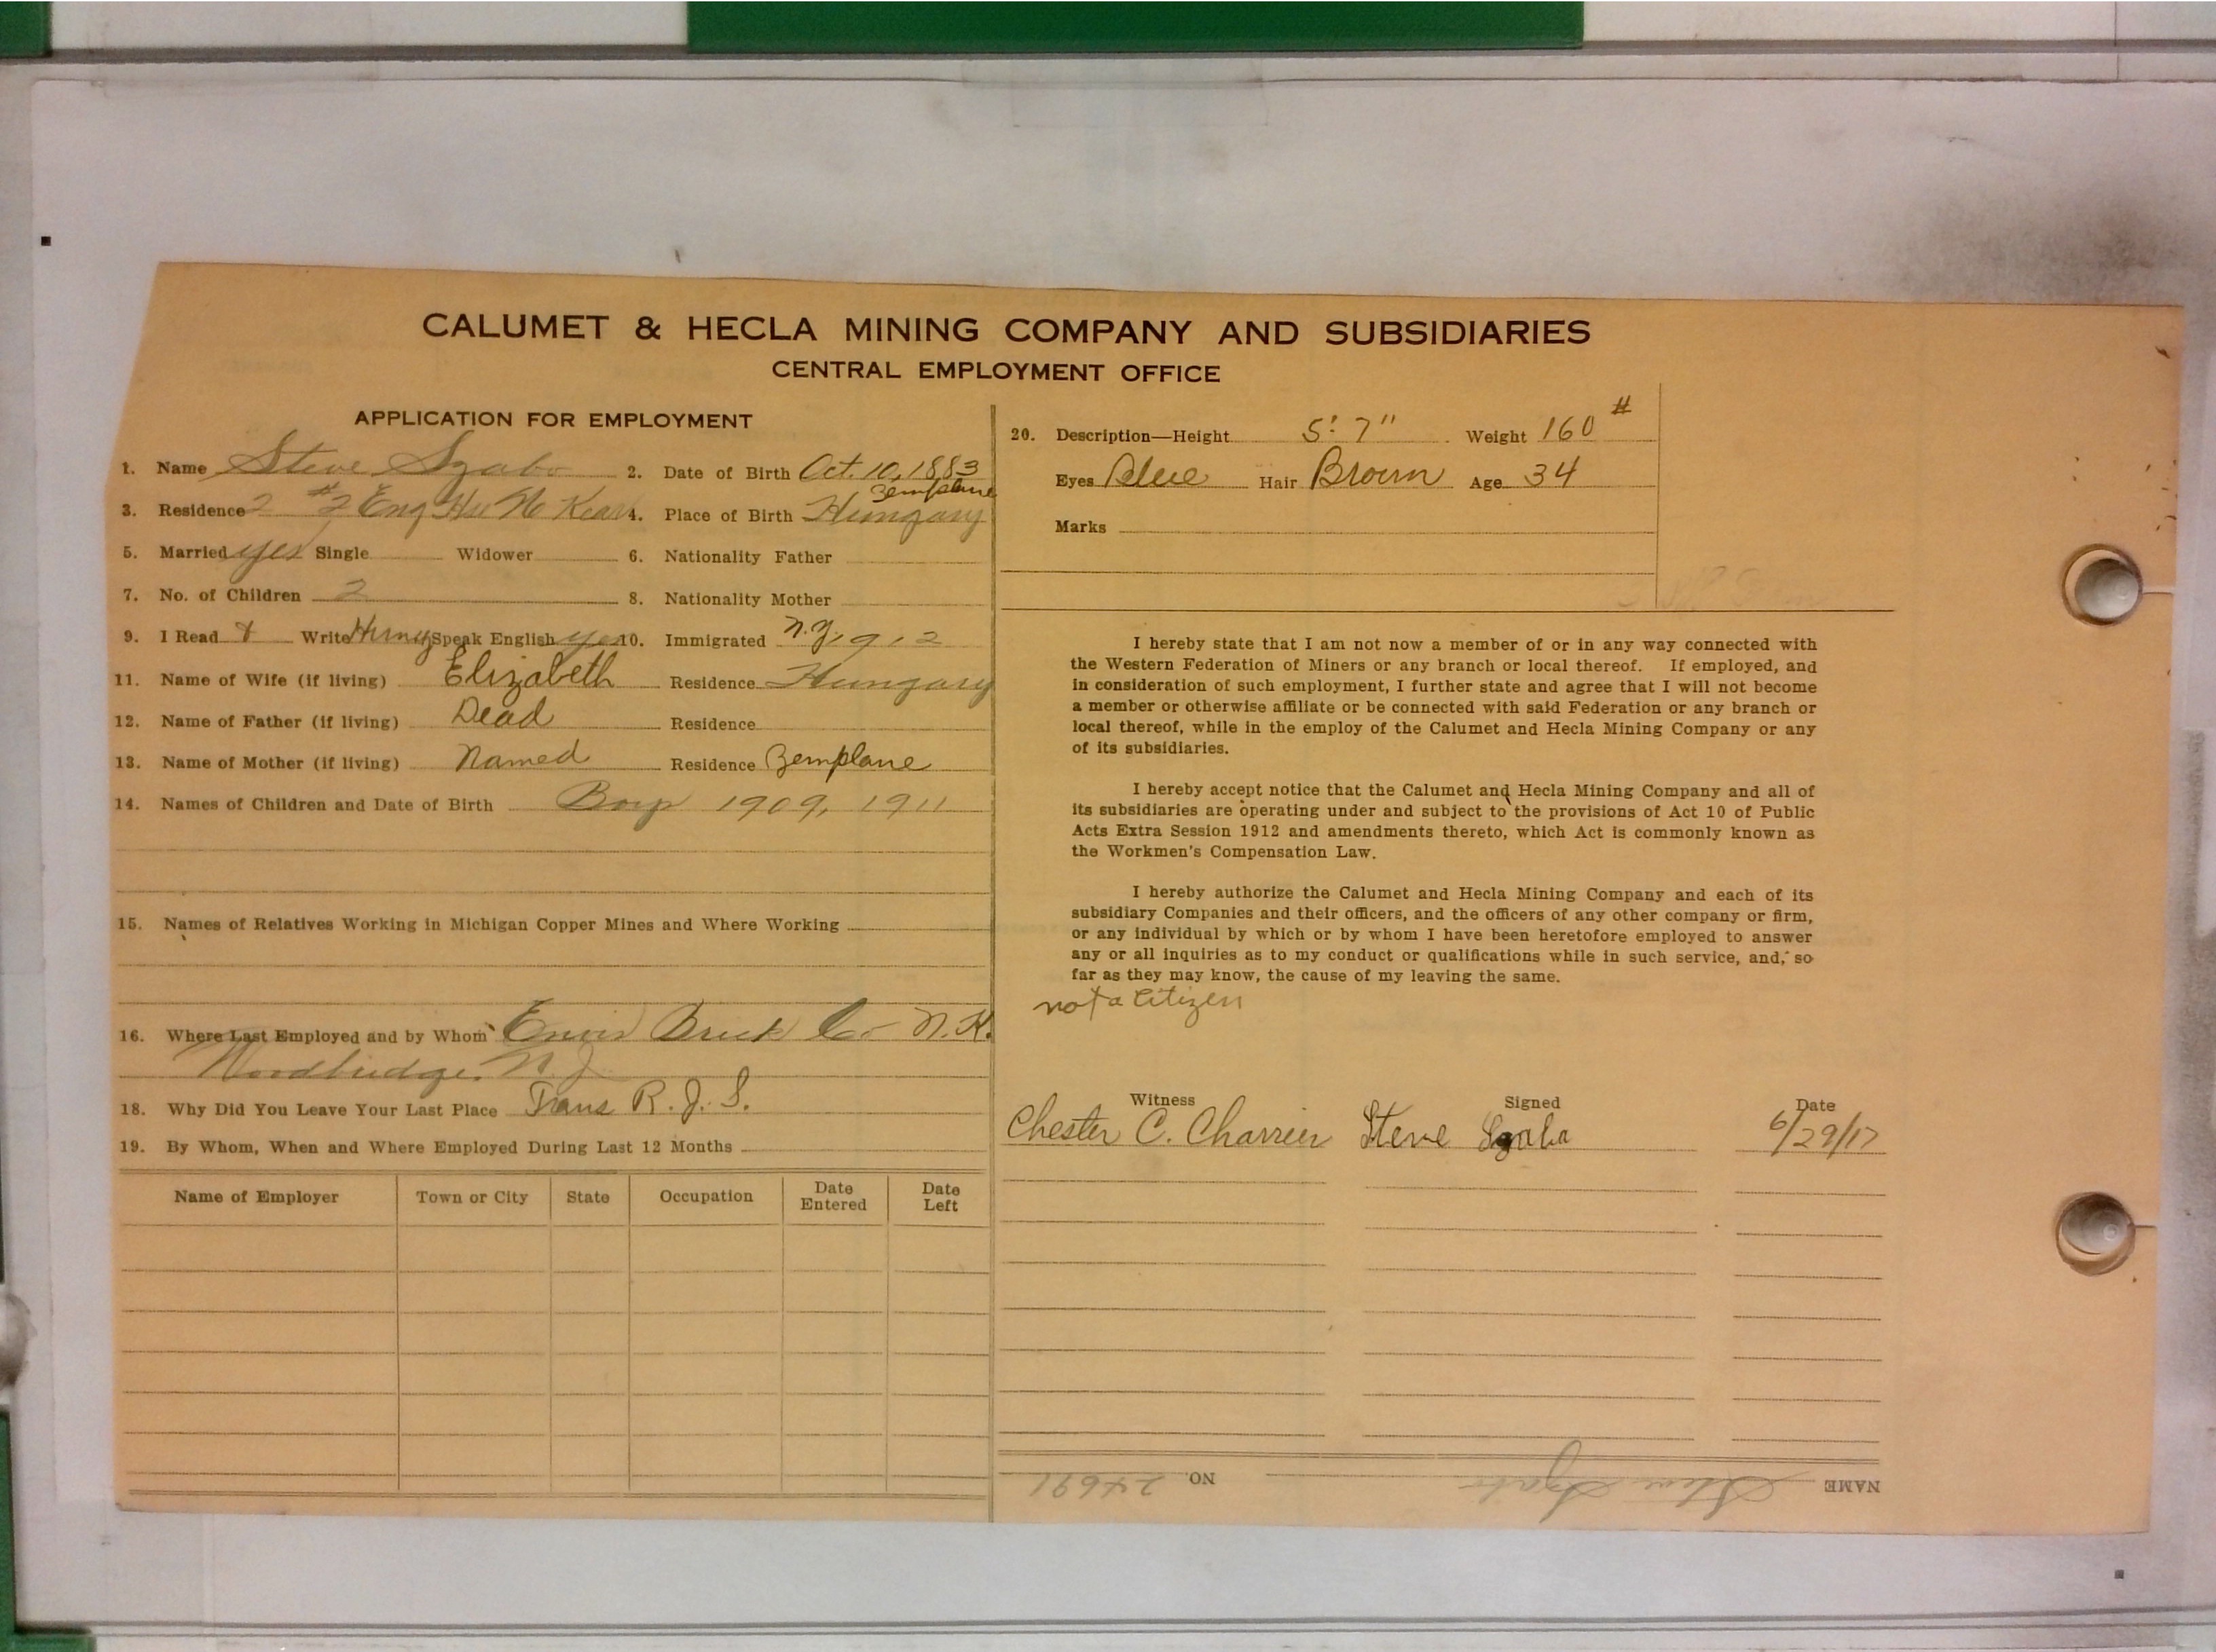 CALUMET & HECLA MINING COMPANY AND SUBSIDIARIES
CENTRAL EMPLOYMENT OFFICE
APPLICATION FOR EMPLOYMENT
1. Name Steve Szabo 2. Date of Birth Oct. 10, 1883
Zemplane
3. Residence 2 #2 Eng Hse No Kear 4. Place of Birth Hungary
5. Married yes Single Widower 6. Nationality Father
7. No. of Children 2 8. Nationality Mother
9. I Read & Write Hung Speak English yes 10. Immigrated N.Y. 1912
11. Name of Wife (if living) Elizabeth Residence Hungary
12. Name of Father (if living) Dead Residence
13. Name of Mother (if living) Named Residence Zemplane
14. Names of Children and Date of Birth Boys 1909, 1911
15. Names of Relatives Working in Michigan Copper Mines and Where Working
16. Where Last Employed and by Whom Brick Co N.K.
Woodbridge. N.J.
18. Why Did You Leave Your Last Place Trans R. J. S.
19. By Whom, When and Where Employed During Last 12 Months
Name of Employer Town or City State Occupation Date Entered Date Left
20. Description—Height 5' 7" Weight 160 #
Eyes Blue Hair Brown Age 34
Marks
I hereby state that I am not now a member of or in any way connected with
the Western Federation of Miners or any branch or local thereof. If employed, and
in consideration of such employment, I further state and agree that I will not become
a member or otherwise affiliate or be connected with said Federation or any branch or
local thereof, while in the employ of the Calumet and Hecla Mining Company or any
of its subsidiaries.
I hereby accept notice that the Calumet and Hecla Mining Company and all of
its subsidiaries are operating under and subject to the provisions of Act 10 of Public
Acts Extra Session 1912 and amendments thereto, which Act is commonly known as
the Workmen's Compensation Law.
I hereby authorize the Calumet and Hecla Mining Company and each of its
subsidiary Companies and their officers, and the officers of any other company or firm,
or any individual by which or by whom I have been heretofore employed to answer
any or all inquiries as to my conduct or qualifications while in such service, and, so
far as they may know, the cause of my leaving the same.
not a Citizen
Witness Signed Date
Chester C. Charrier Steve Szaba 6/29/17
NAME Steve Szabo NO. 24691